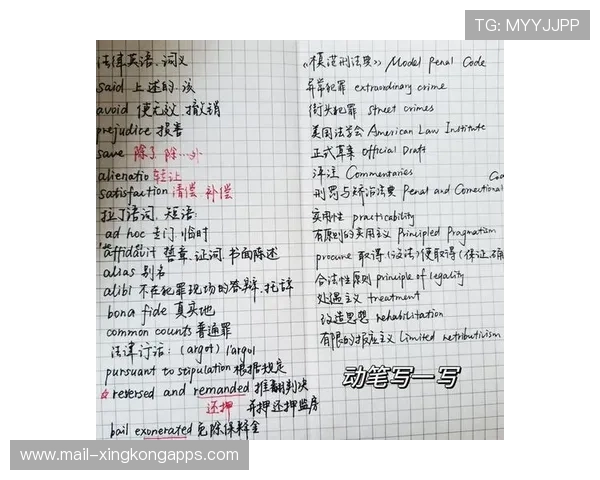 TG: MYYJJPP
法律英语.词义
said 上述的.该
avoid 使无效.撤销
prejudice 损害
save 除了 除…外
alienatio 转让
satisfaction 清偿 补偿
拉丁语词.短语:
ad hoc 专门.临时
affidavit 誓章.证词.书面陈述
alias 别名
alibi 不在犯罪现场的答辩.托辞
bona fide 真实地
common counts 普通罪
法律行话: (argot) l'argot
pursuant to stipulation 根据规定
☆ reversed and remanded 推翻判决
还押 弃押还押监房
bail exonerated 免除保释金
《模范刑法典》 Model Penal Code
异常犯罪 extraordinary crime
街头犯罪 street crimes
美国法学会 American Law Institute
正式草案 Official Draft
评注 Commentaries
刑罚与矫治法典 Penal and Correctional
实用性 practicability
有原则的实用主义 Principled Pragmatism
procure 取得(设法)使取得(保证.确
合法性原则 principle of legality
处遇主义 treatment
改造思想 rehabilitation
有限的报应主义 Limited retributivism
动笔写一写
www.mail-xingkongapps.com